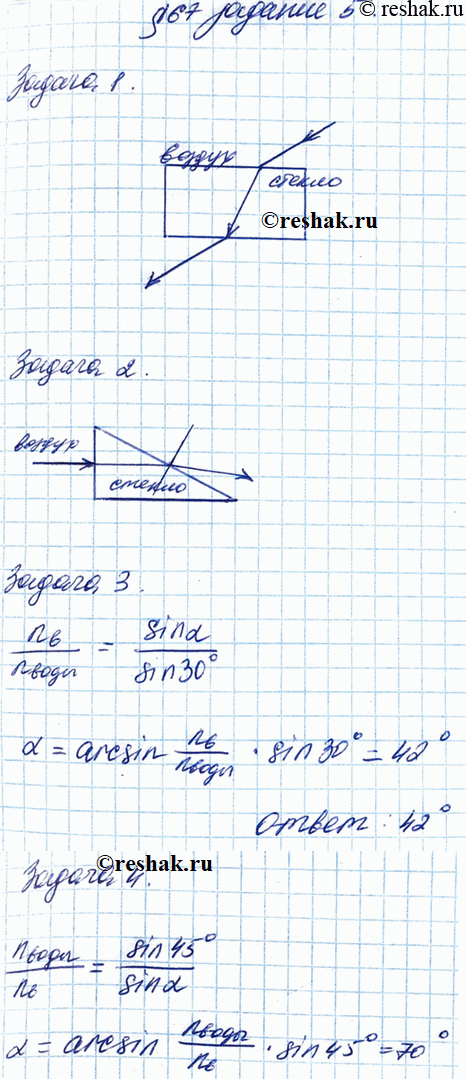 §67 задание 5
© reshak.ru
Задача 1.
воздух
стекло
©reshak.ru
Задача 2.
воздух
стекло
Задача 3.
nв/nводы = sinα/sin30°
α = arcsin nв/nводы · sin30° = 42°
ответ: 42°
©reshak.ru
Задача 4.
nводы/nв = sin45°/sinα
α = arcsin nводы/nв · sin45° = 70°